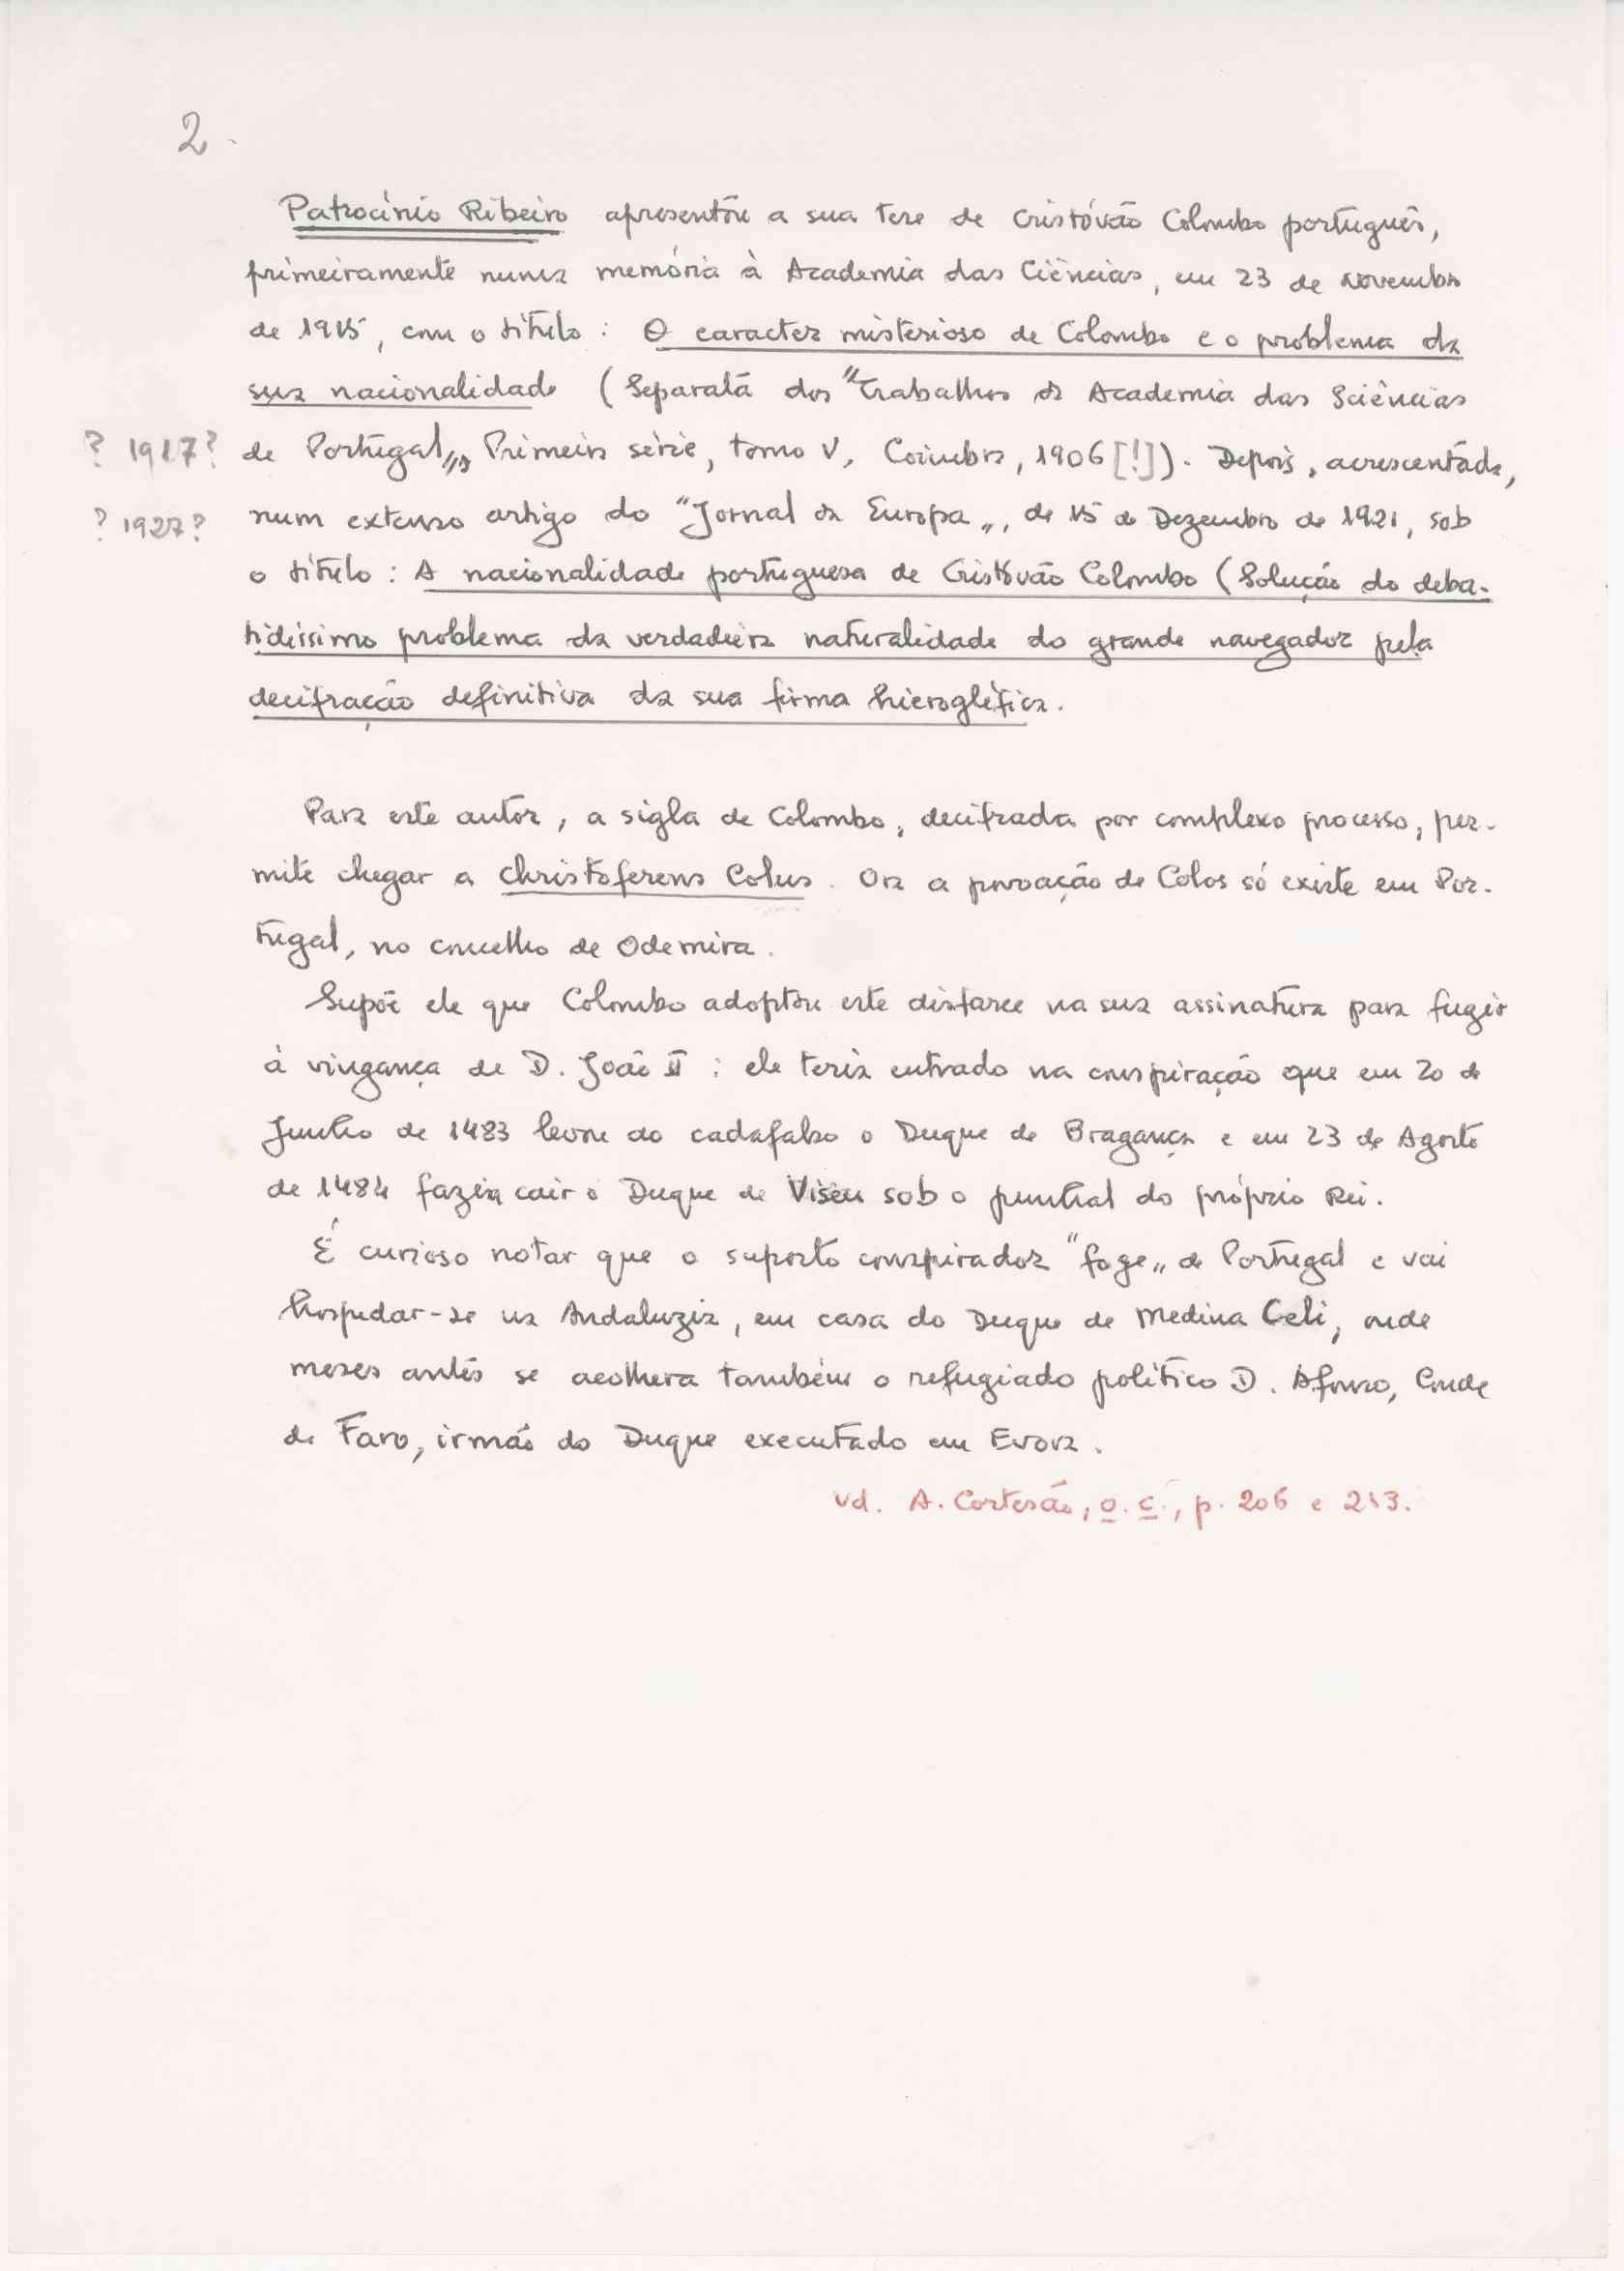 2.
Patrocínio Ribeiro apresentou a sua tese de Cristóvão Colombo português,
primeiramente numa memória à Academia das Ciências, em 23 de Novembro
de 1915, com o título: O caracter misterioso de Colombo e o problema da
sua nacionalidade (Separata dos "Trabalhos da Academia das Sciências
? 1917? de Portugal", Primeira série, tomo V, Coimbra, 1906 [!]). Depois, acrescentada,
? 1927? num extenso artigo do "Jornal da Europa", de 15 de Dezembro de 1921, sob
o título: A nacionalidade portuguesa de Cristóvão Colombo (Solução do deba-
tidíssimo problema da verdadeira naturalidade do grande navegador pela
decifração definitiva da sua firma hieroglífica.
Para este autor, a sigla de Colombo, decifrada por complexo processo, per-
mite chegar a Christoferens Colus. Ora a povoação de Colos só existe em Por-
tugal, no concelho de Odemira.
Supõe ele que Colombo adoptou este disfarce na sua assinatura para fugir
à vingança de D. João II: ele teria entrado na conspiração que em 20 de
Junho de 1483 levou ao cadafalso o Duque de Bragança e em 23 de Agosto
de 1484 fazia cair o Duque de Viseu sob o punhal do próprio Rei.
É curioso notar que o suposto conspirador "foge" de Portugal e vai
hospedar-se na Andaluzia, em casa do Duque de Medina Celi, onde
meses antes se acolhera também o refugiado político D. Afonso, Conde
de Faro, irmão do Duque executado em Evora.
vd. A. Cortesão, o. c., p. 206 e 213.